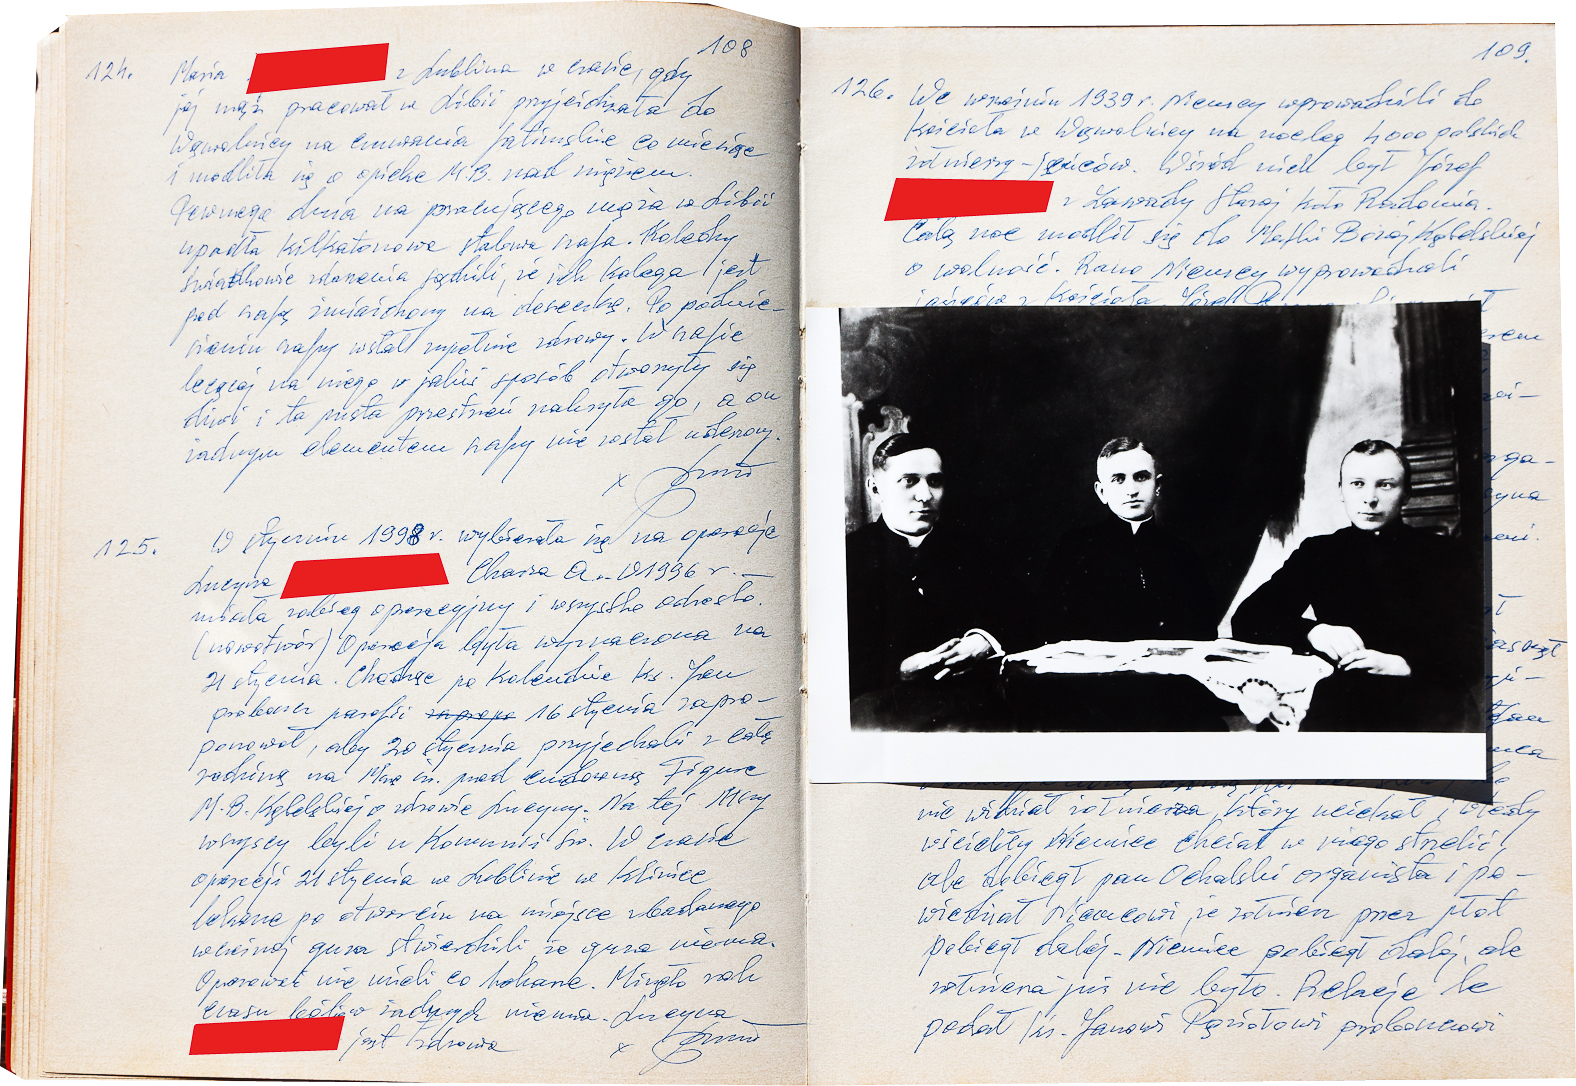 108
124. Maria z Lublina w czasie, gdy
jej mąż pracował w Libii przyjeżdżała do
Wąwolnicy na czuwania fatimskie co miesiąc
i modliła się o opiekę M.B. nad mężem.
Pewnego dnia na pracującego męża w Libii
upadła kilkatonowa stalowa szafa. Koledzy
świadkowie zdarzenia sądzili, że ich kolega jest
pod szafą zmiażdżony na deseczkę. Po podnie-
sieniu szafy wstał zupełnie zdrowy. W szafie
lecącej na niego w jakiś sposób otworzyły się
drzwi i ta pusta przestrzeń nakryła go, a on
żadnym elementem szafy nie został uderzony.
x
125. W styczniu 1998 r. wybierała się na operację
Lucyna Chora W 1996 r.
miała zabieg operacyjny i wszystko odrosło.
(nowotwór) Operacja była wyznaczona na
21 stycznia. Chodząc po kolendzie ks. Jan
proboszcz parafii 16 stycznia zapro-
ponował, aby 20 stycznia przyjechali z całą
rodziną na Mszę św. przed cudowną Figurę
M.B. Kębelskiej o zdrowie Lucyny. Na tej Mszy
wszyscy byli u Komunii św. W czasie
operacji 21 stycznia w Lublinie w Klinice
lekarze po otwarciu na miejsce zbadanego
wcześniej guza stwierdzili, że guza niema.
Operować nie mieli co lekarze. Minęło rok
czasu bólów żadnych niema. Lucyna
jest zdrowa
x
109.
126. We wrześniu 1939 r. Niemcy wprowadzili do
Kościoła w Wąwolnicy na nocleg 4000 polskich
żołnierzy-jeńców. Wśród nich był Józef
z Zawady Starej koło Radomia.
Całą noc modlił się do Matki Bożej Kębelskiej
o wolność. Rano Niemcy wyprowadzali
jeńców z Kościoła. Józef
nie widział żołnierza, który uciekał i wtedy
wściekły Niemiec chciał w niego strzelić,
ale dobiegł pan Ochalski organista i po-
wiedział Niemcowi, że żołnierz przez płot
pobiegł dalej. Niemiec pobiegł dalej, ale
żołnierza już nie było. Relację tę
podał ks. Janowi Pęziołowi proboszczowi